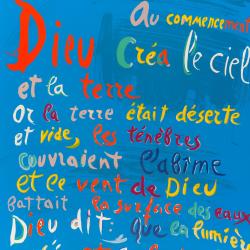 Au commencement
Dieu créa le ciel
et la terre
Or la terre était déserte
et vide, les ténèbres
couvraient l'abîme
et le vent de Dieu
battait la surface des eaux
Dieu dit: que la lumiè